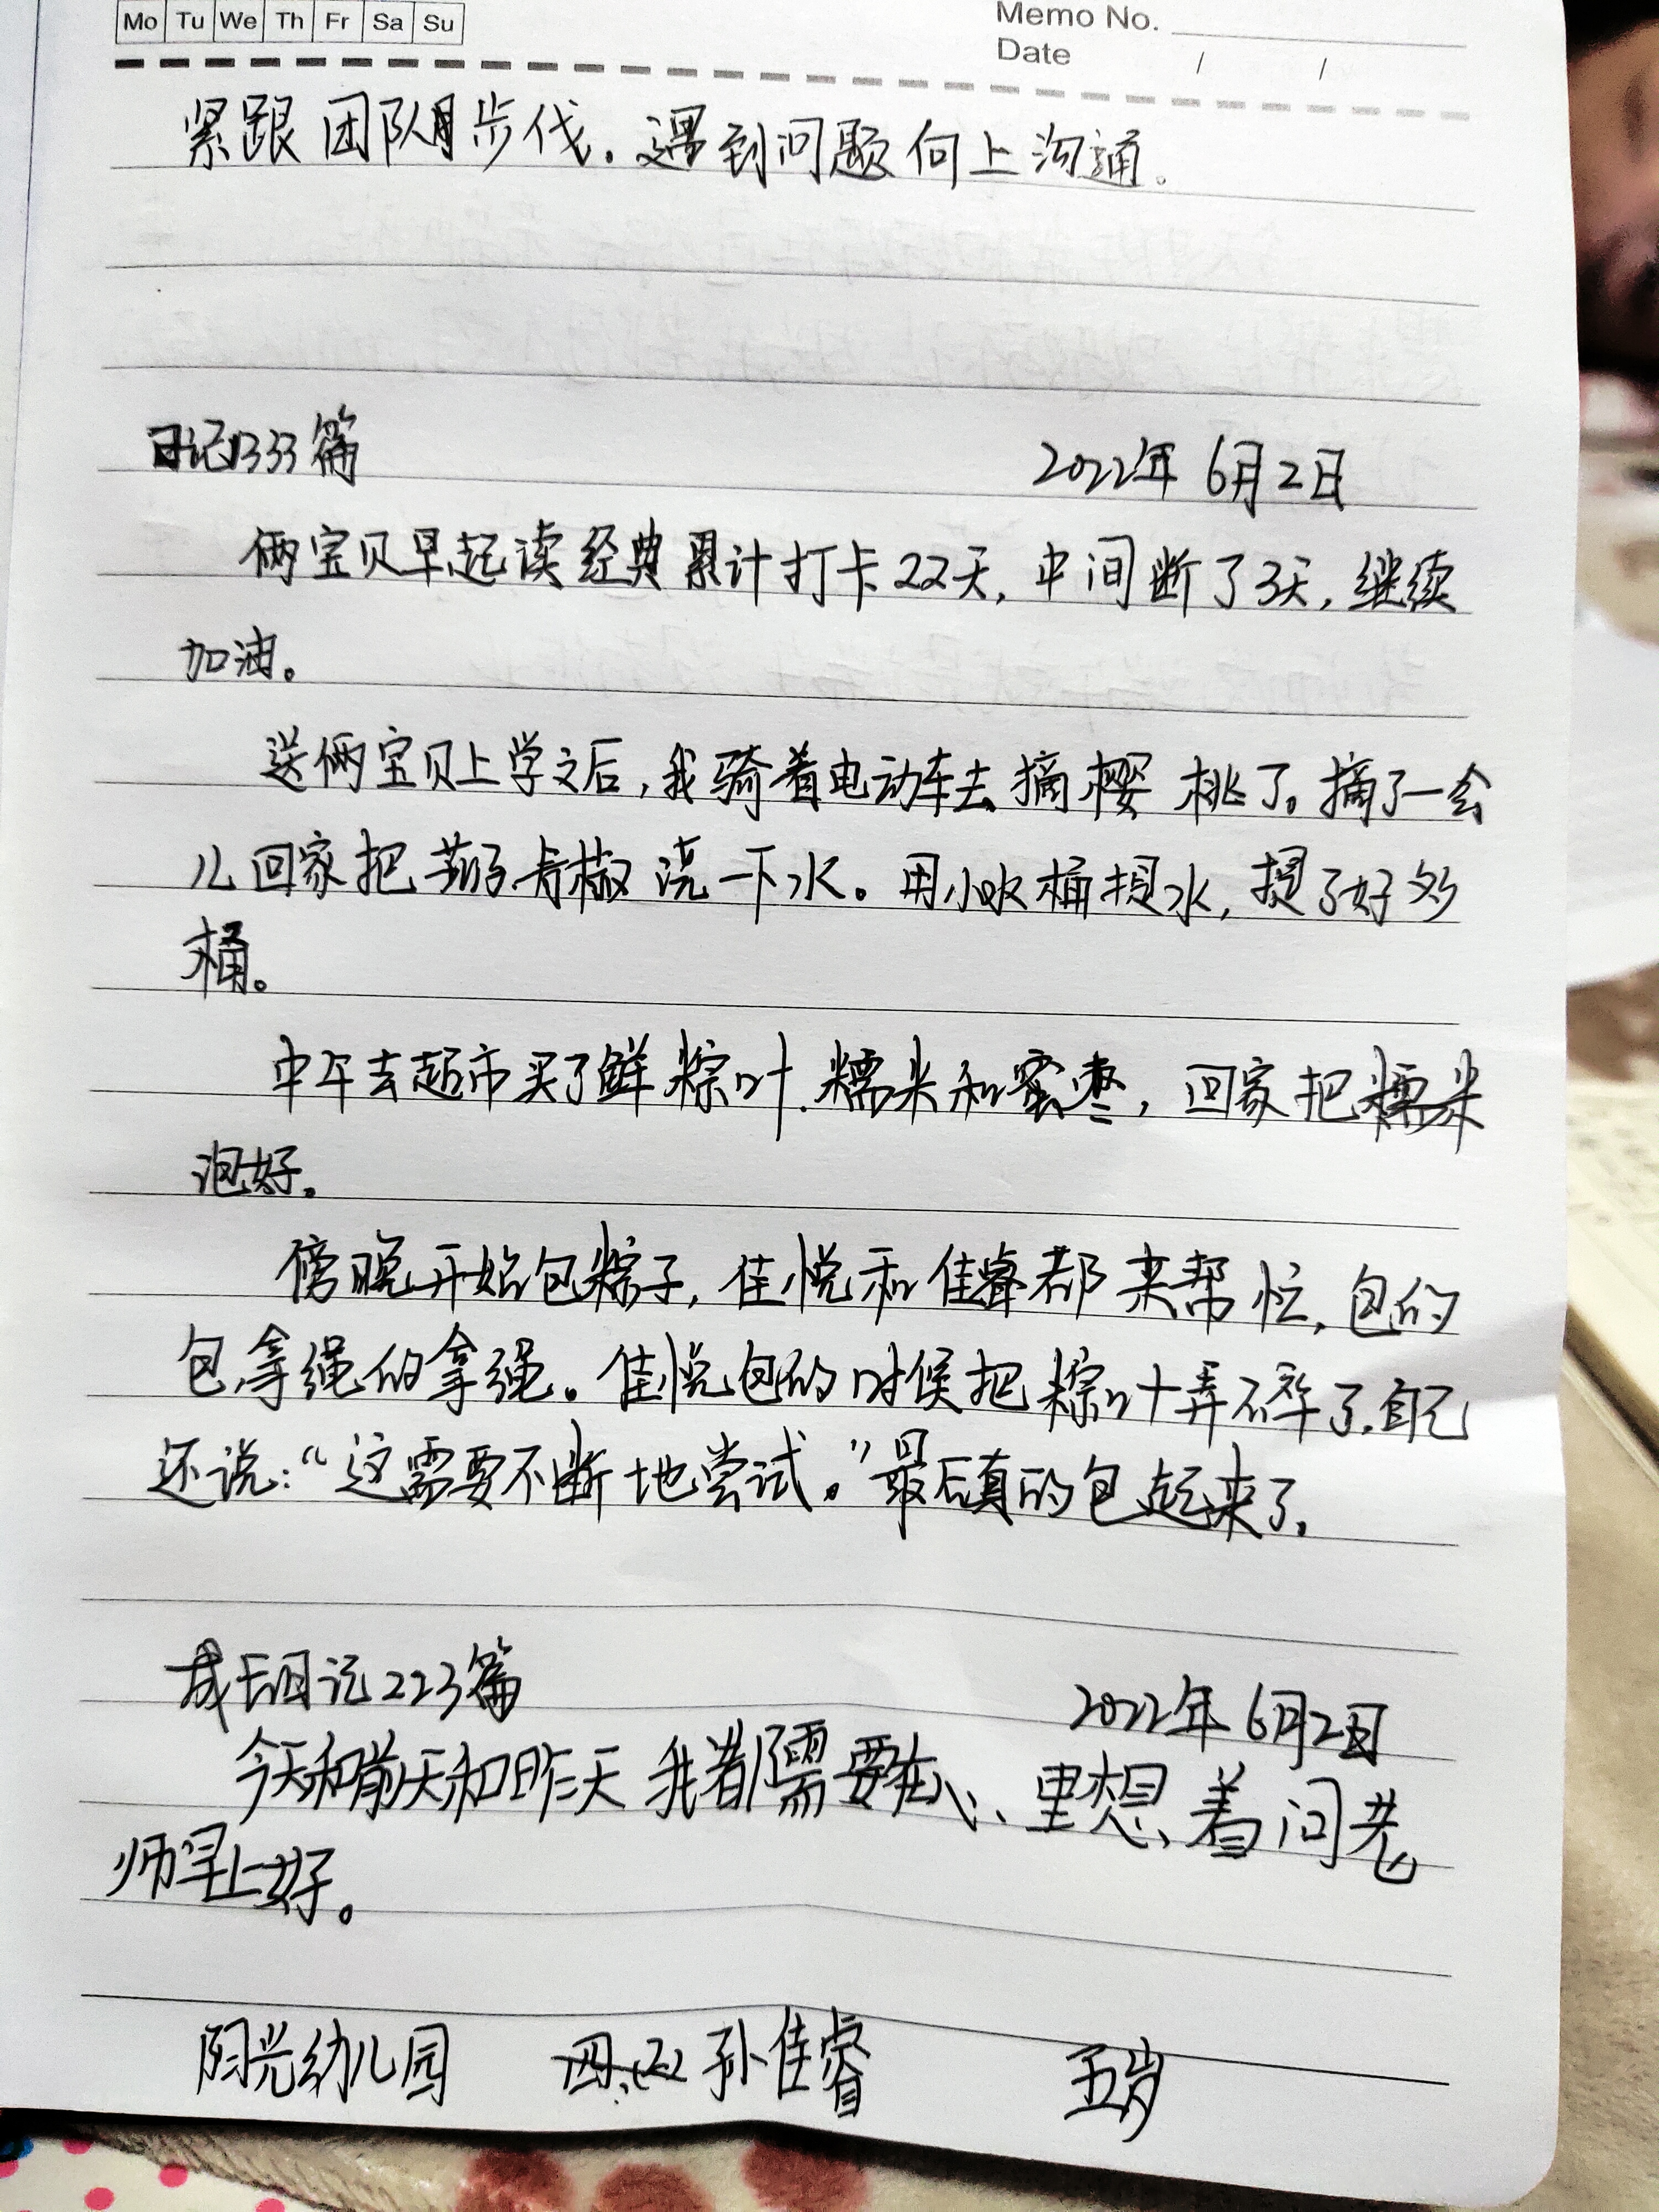 Mo Tu We Th Fr Sa Su
Memo No.
Date / /
紧跟团队步伐。遇到问题向上沟通。
日记1333篇 2022年6月2日
俩宝贝早起读经典累计打卡22天，中间断了3天，继续
加油。
送俩宝贝上学之后，我骑着电动车去摘樱桃了。摘了一会
儿回家把 椒浇一下水。用小水桶提水，提了好多
桶。
中午去超市买了鲜粽叶.糯米和蜜枣，回家把糯米
泡好。
傍晚开始包粽子，佳悦和佳睿都来帮忙，包的
包，拿绳的拿绳。佳悦包的时候把粽叶弄碎了，自己
还说：“这需要不断地尝试。”最后真的包起来了。
成长日记223篇 2022年6月2日
今天和前天和昨天我都需要在心里想着问老
师早上好。
阳光幼儿园 孙佳睿 五岁